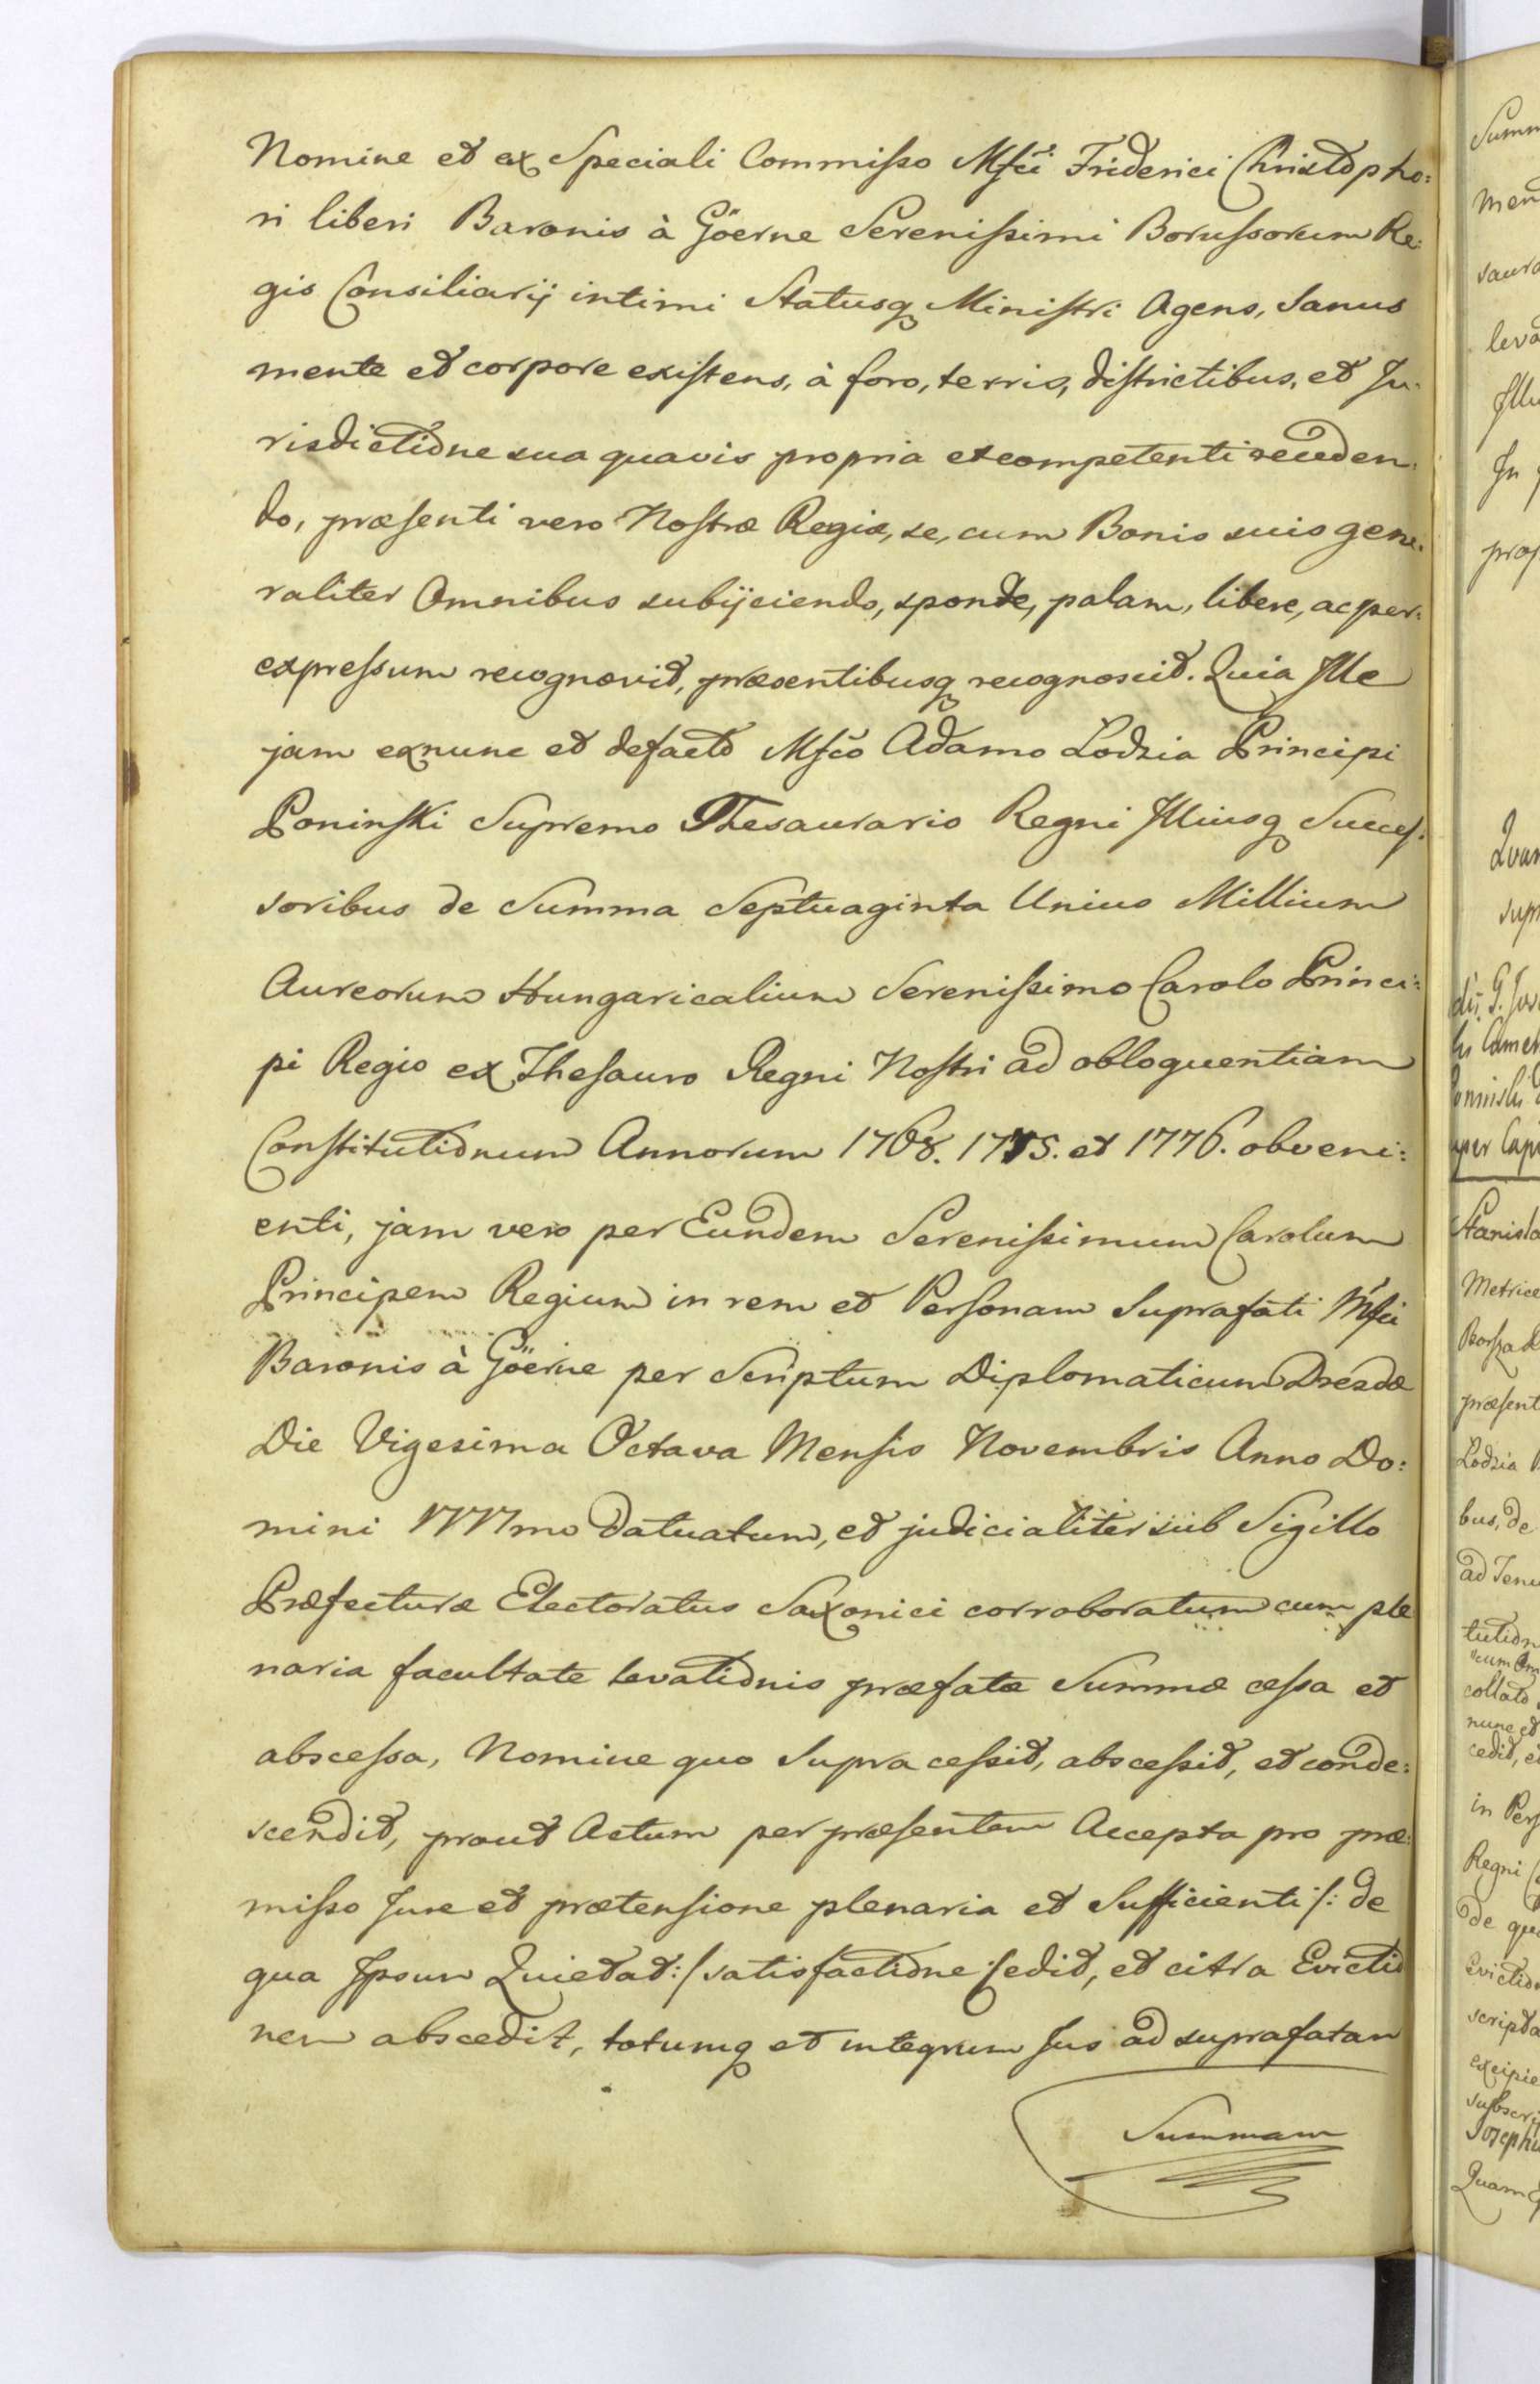 Nomine et ex Speciali Commisso Mfci Friderici Christopho:
ri liberi Baronis à Göerne Serenissimi Borussorum Re:
gis Consiliarij intimi Statusq Ministri Agens, Sanus
mente et corpore existens, à foro, terris, districtibus, et Ju:
risdictione sua quavis propria et competenti receden:
do, præsenti vero Nostræ Regiæ, se, cum Bonis suis gene:
raliter Omnibus subijciendo, sponte, palam, libere, ac per:
expressum recognovit, præsentibusq recognoscit. Quia Ille
jam exnunc et defacto Mfco Adamo Lodzia Principi
Poninski Supremo Thesaurario Regni Illiusq Succes:
soribus de Summa Septuaginta Unius Millium
Aureorum Hungaricalium Serenissimo Carolo Princi:
pi Regio ex Thesauro Regni Nostri ad obloquentiam
Constitutionum Annorum 1768. 1775. et 1776. obveni:
enti, jam vero per Eundem Serenissimum Carolum
Principem Regium in rem et Personam Suprafati Mfci
Baronis à Göerne per Scriptum Diplomaticum Dresdæ
Die Vigesima Octava Mensis Novembris Anno Do:
mini 1777mo Datuatum, et judicialiter sub Sigillo
Præfecturæ Electoratus Saxonici corroboratum cum ple
naria facultate levationis præfatæ Summæ cessa et
abscessa, Nomine quo Supra cessit, abscessit, et conde:
scendit, prout Actum per præsentem Accepta pro præ:
misso Jure et prætensione plenaria et Sufficienti /: de
qua Ipsum Quietat :/ satisfactione Cedit, et citra Evictio
nem abscedit, totumq et integrum Jus ad suprafatam
Summam